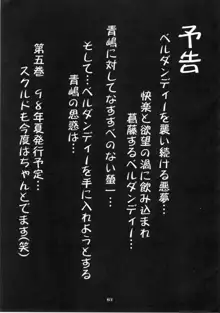 予告
ベルダンディーを襲い続ける悪夢…
快楽と欲望の渦に飲み込まれ
葛藤するベルダンディー…
青嶋に対してなすすべのない螢一…
そして…ベルダンディーを手に入れようとする
青嶋の思惑は…
第五巻 98年夏発行予定…
スクルドも今度はちゃんとでてます(笑)